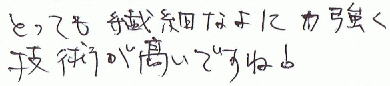 とっても繊細なよに力強く
技術が高いですね。